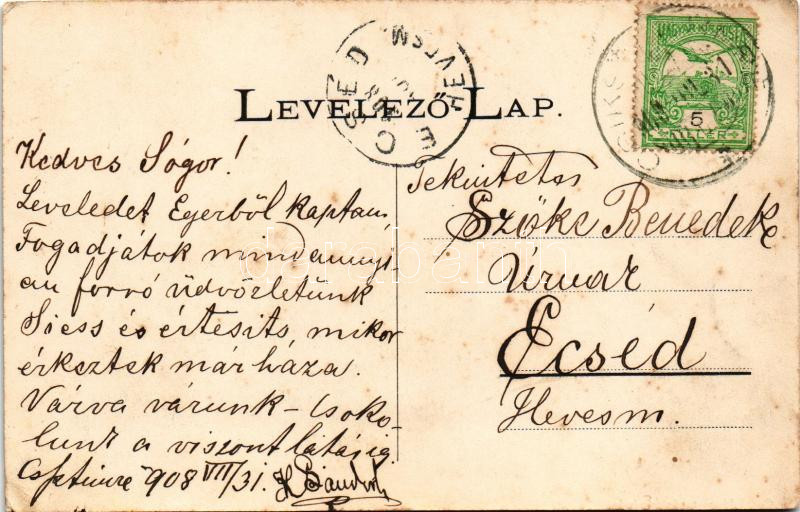 LEVELEZŐ-LAP.
ECSÉD
HEVESM
5
FILLÉR
Kedves Sógor!
Leveledet Egerből kaptam,
Fogadjátok mindannyi-
an forró üdvözletünk
Siess és értesits, mikor
érkeztek már haza.
Várva várunk – Csoko-
lunk a viszontlátásig.
908 VIII/31.
Tekintetes
Szőke Benedek
Urnak
Ecséd
Hevesm.
darabanth